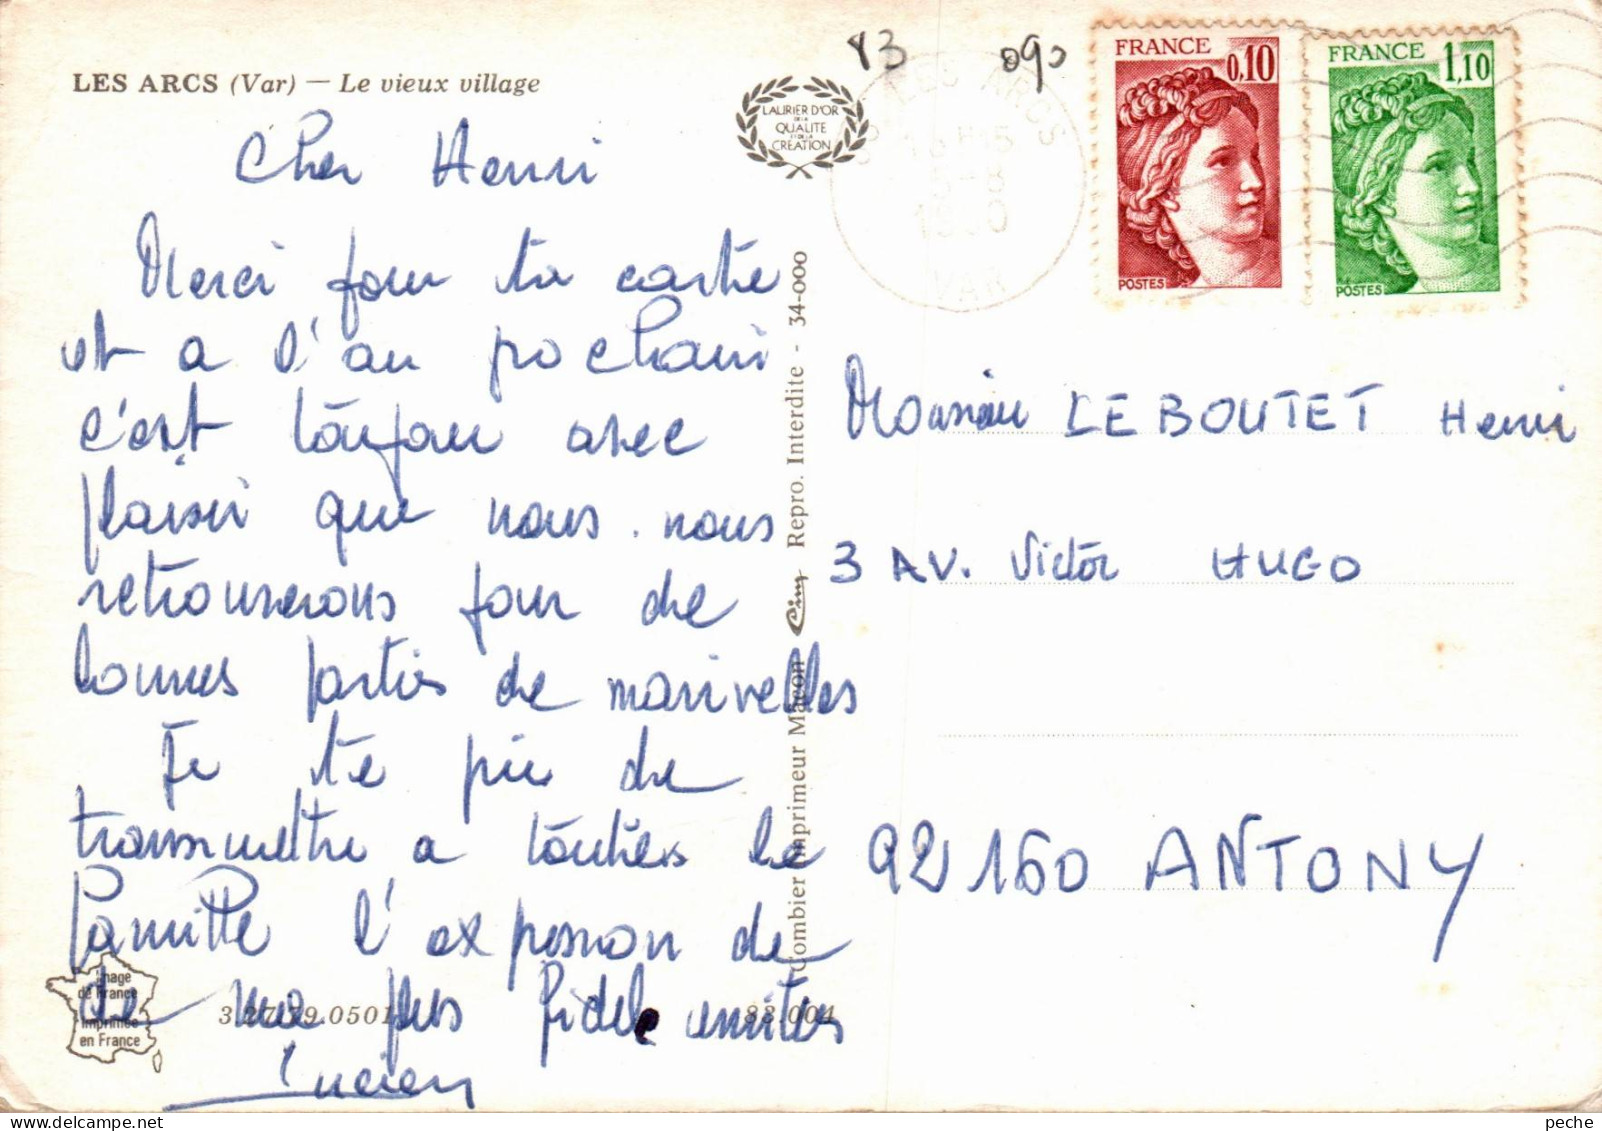 LES ARCS (Var) — Le vieux village
Cher Henri
Merci pour ta carte
et a l'an prochain
c'est toujour avec
plaisir que nous nous
retrouverons pour de
bonnes parties de manivelles
Je te prie de
transmettre a toutes la
famille l'expression de
de mes plus fidele amities
Lucien
LAURIER D'OR
DE LA
QUALITE
ET DE LA
CREATION
Image
de France
Imprimée
en France
3.27.79.0501
83.004
Combier Imprimeur Macon Cim Repro. Interdite - 34-000
83 090
LES ARCS
VAR
FRANCE 0,10
POSTES
FRANCE 1,10
POSTES
Monsieur LEBOUTET Henri
3 AV. Victor HUGO
92160 ANTONY
peche